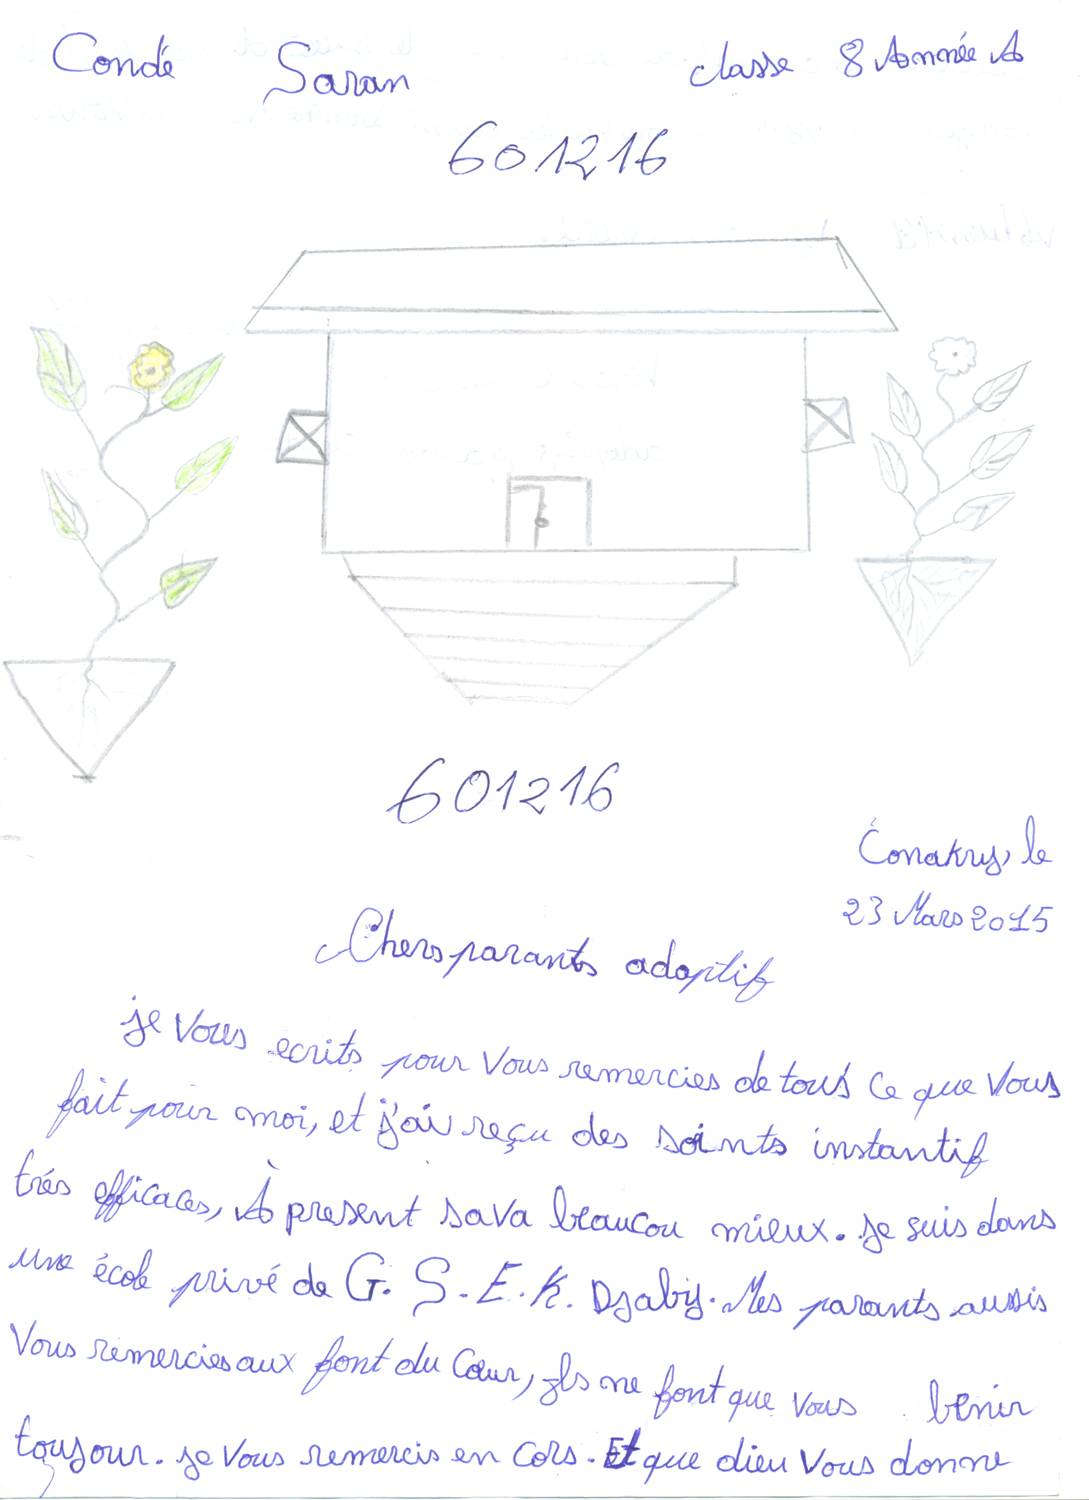 Condé Saran classe 8 Année A
601216
601216
Conakry, le
23 Mars 2015
Chers parants adoptif
je vous ecrits pour vous remercies de tous ce que vous
fait pour moi, et j'ai reçu des soints instantif
trés efficaces, À present sava beaucou mieux. je suis dans
une école privé de G. S. E. K. Djaby. Mes parants aussis
vous remercies aux font du Cœur, ils ne font que vous benir
toujour. je vous remercis en cors. Et que dieu vous donne